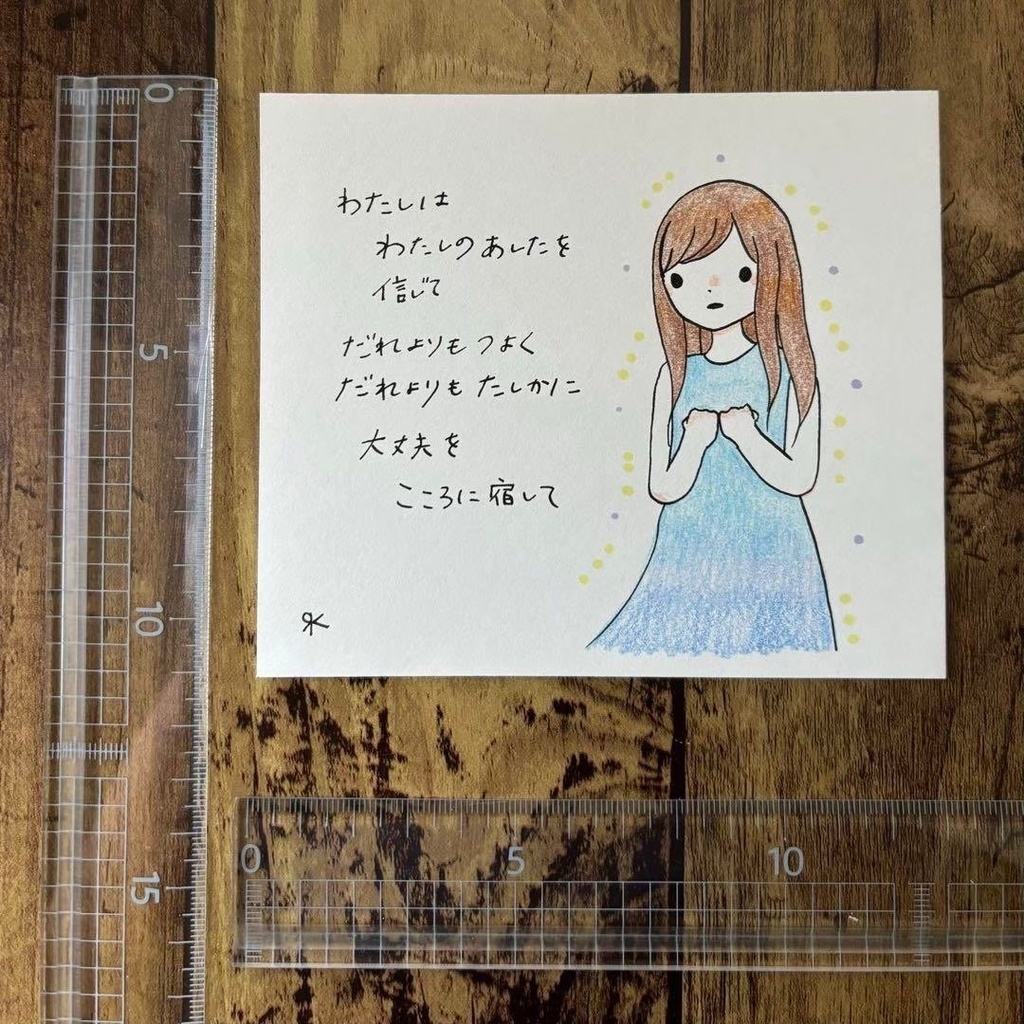 わたしは
わたしのあしたを
信じて
だれよりもつよく
だれよりもたしかに
大丈夫を
こころに宿して
0
5
10
15
0
5
10